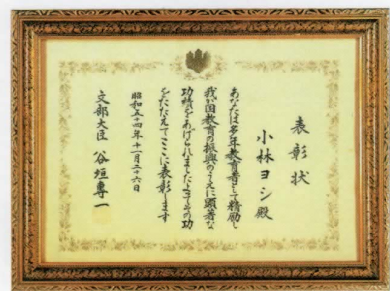 表彰状
小林ヨシ殿
あなたは多年教育者として精励し
我が国教育の振興のうえに顕著な
功績をあげられましたよってその功
をたたえてここに表彰します
昭和五十四年十一月二十六日
文部大臣 谷垣專一